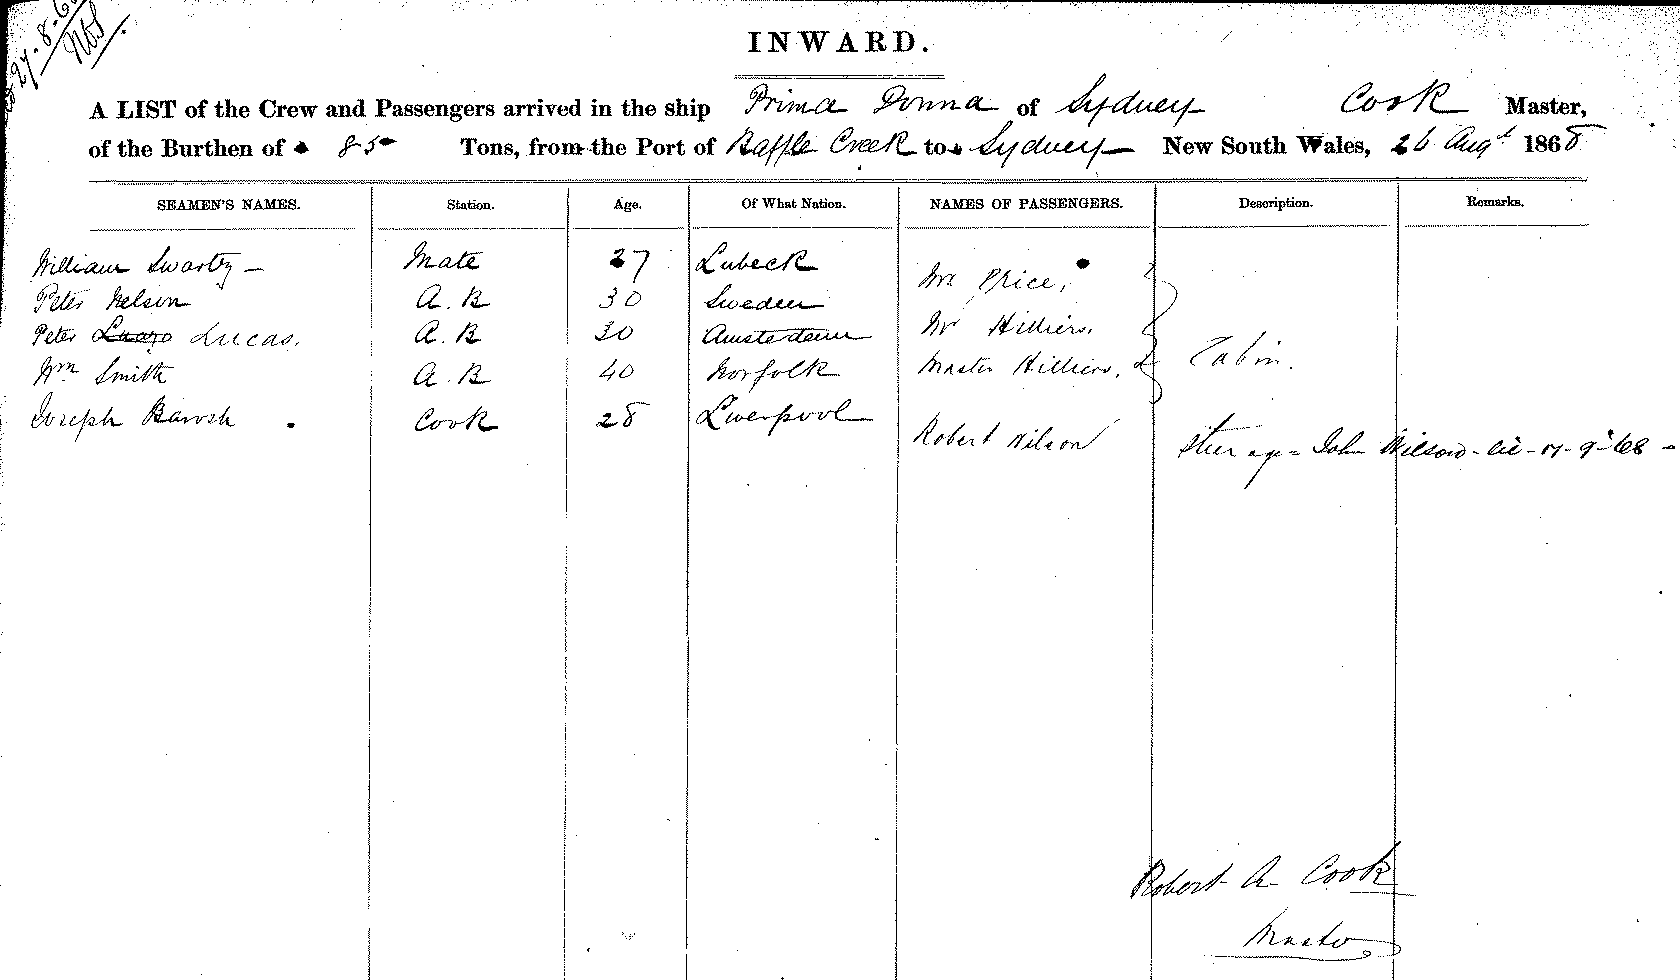 27.8.6
INWARD.
A LIST of the Crew and Passengers arrived in the ship Prima Donna of Sydney Cook Master,
of the Burthen of 85 Tons, from the Port of Baffle Creek to Sydney New South Wales, 26 Augt 1868
SEAMEN'S NAMES. Station. Age. Of What Nation. NAMES OF PASSENGERS. Description. Remarks.
William Swarty Mate 27 Lubeck Mr Price,
Peter Nelson A.B 30 Sweden
Peter Lucas. A.B 30 Amsterdam Mr Hilliers,
Wm Smith A.B 40 Norfolk Master Hilliers, Cabin.
Joseph Barosh Cook 28 Liverpool
Robert Wilson Steerage = John Wilson
Robert A Cook
Master